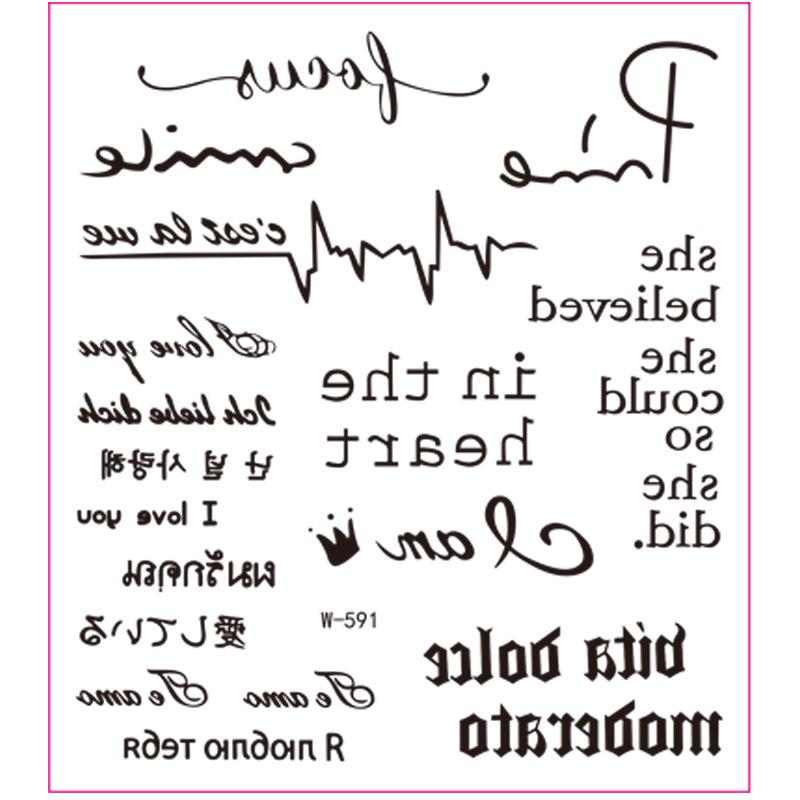 focus
smile
c'est la vie
she
believed
she
could
so
she
did.
I love you
Ich liebe dich
난 널 사랑해
I love you
ผมรักคุณ
愛している
Te amo Te amo
Я люблю тебя
in the
heart
I am
W-591
vita dolce
moderato